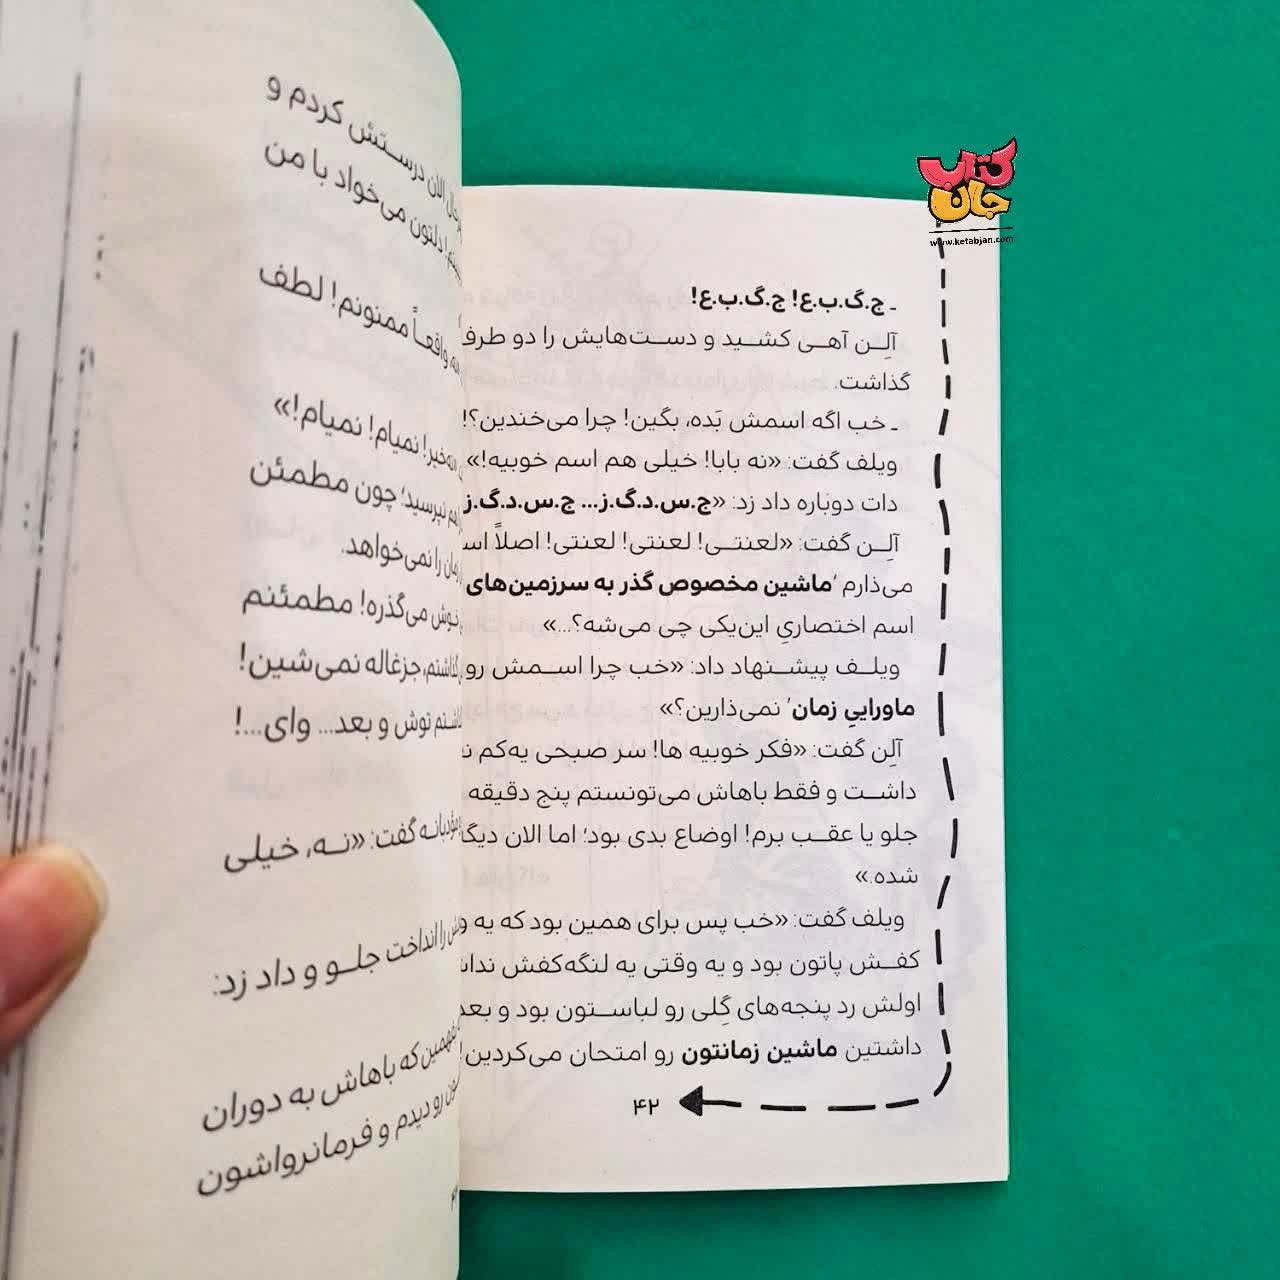 کتاب
جان
www.ketabjan.com
ـ ج.گ.ب.ع! ج.گ.ب.ع!
آلِن آهی کشید و دست‌هایش را دو طرف
گذاشت.
ـ خب اگه اسمش بَده، بگین! چرا می‌خندین؟!
ویلف گفت: «نه بابا! خیلی هم اسم خوبیه!»
دات دوباره داد زد: «ج.س.د.گ.ز... ج.س.د.گ.ز
آلِن گفت: «لعنتی! لعنتی! لعنتی! اصلاً
می‌ذارم ’ماشین مخصوص گذر به سرزمین‌های
اسم اختصاریِ این‌یکی چی می‌شه؟...»
ویلف پیشنهاد داد: «خب چرا اسمش رو
ماوراییِ زمان‘ نمی‌ذارین؟»
آلِن گفت: «فکر خوبیه ها! سر صبحی یه‌کم
داشت و فقط باهاش می‌تونستم پنج دقیقه
جلو یا عقب برم! اوضاع بدی بود؛ اما الان
شده.»
ویلف گفت: «خب پس برای همین بود که یه
کفش پاتون بود و یه وقتی یه لنگه‌کفش
اولش رد پنجه‌های گِلی رو لباستون بود و
داشتین ماشین زمانتون رو امتحان می‌کردین!
۴۲
الان درستش کردم و
دلتون می‌خواد با من
واقعاً ممنونم! لطف
نمیام! نمیام!»
نپرسید؛ چون مطمئن
زمان را نمی‌خواهد.
می‌گذره! مطمئنم
جزغاله نمی‌شین!
توش و بعد... وای...!
گفت: «نه، خیلی
را انداخت جلو و داد زد:
که باهاش به دوران
رو دیدم و فرمانرواشون